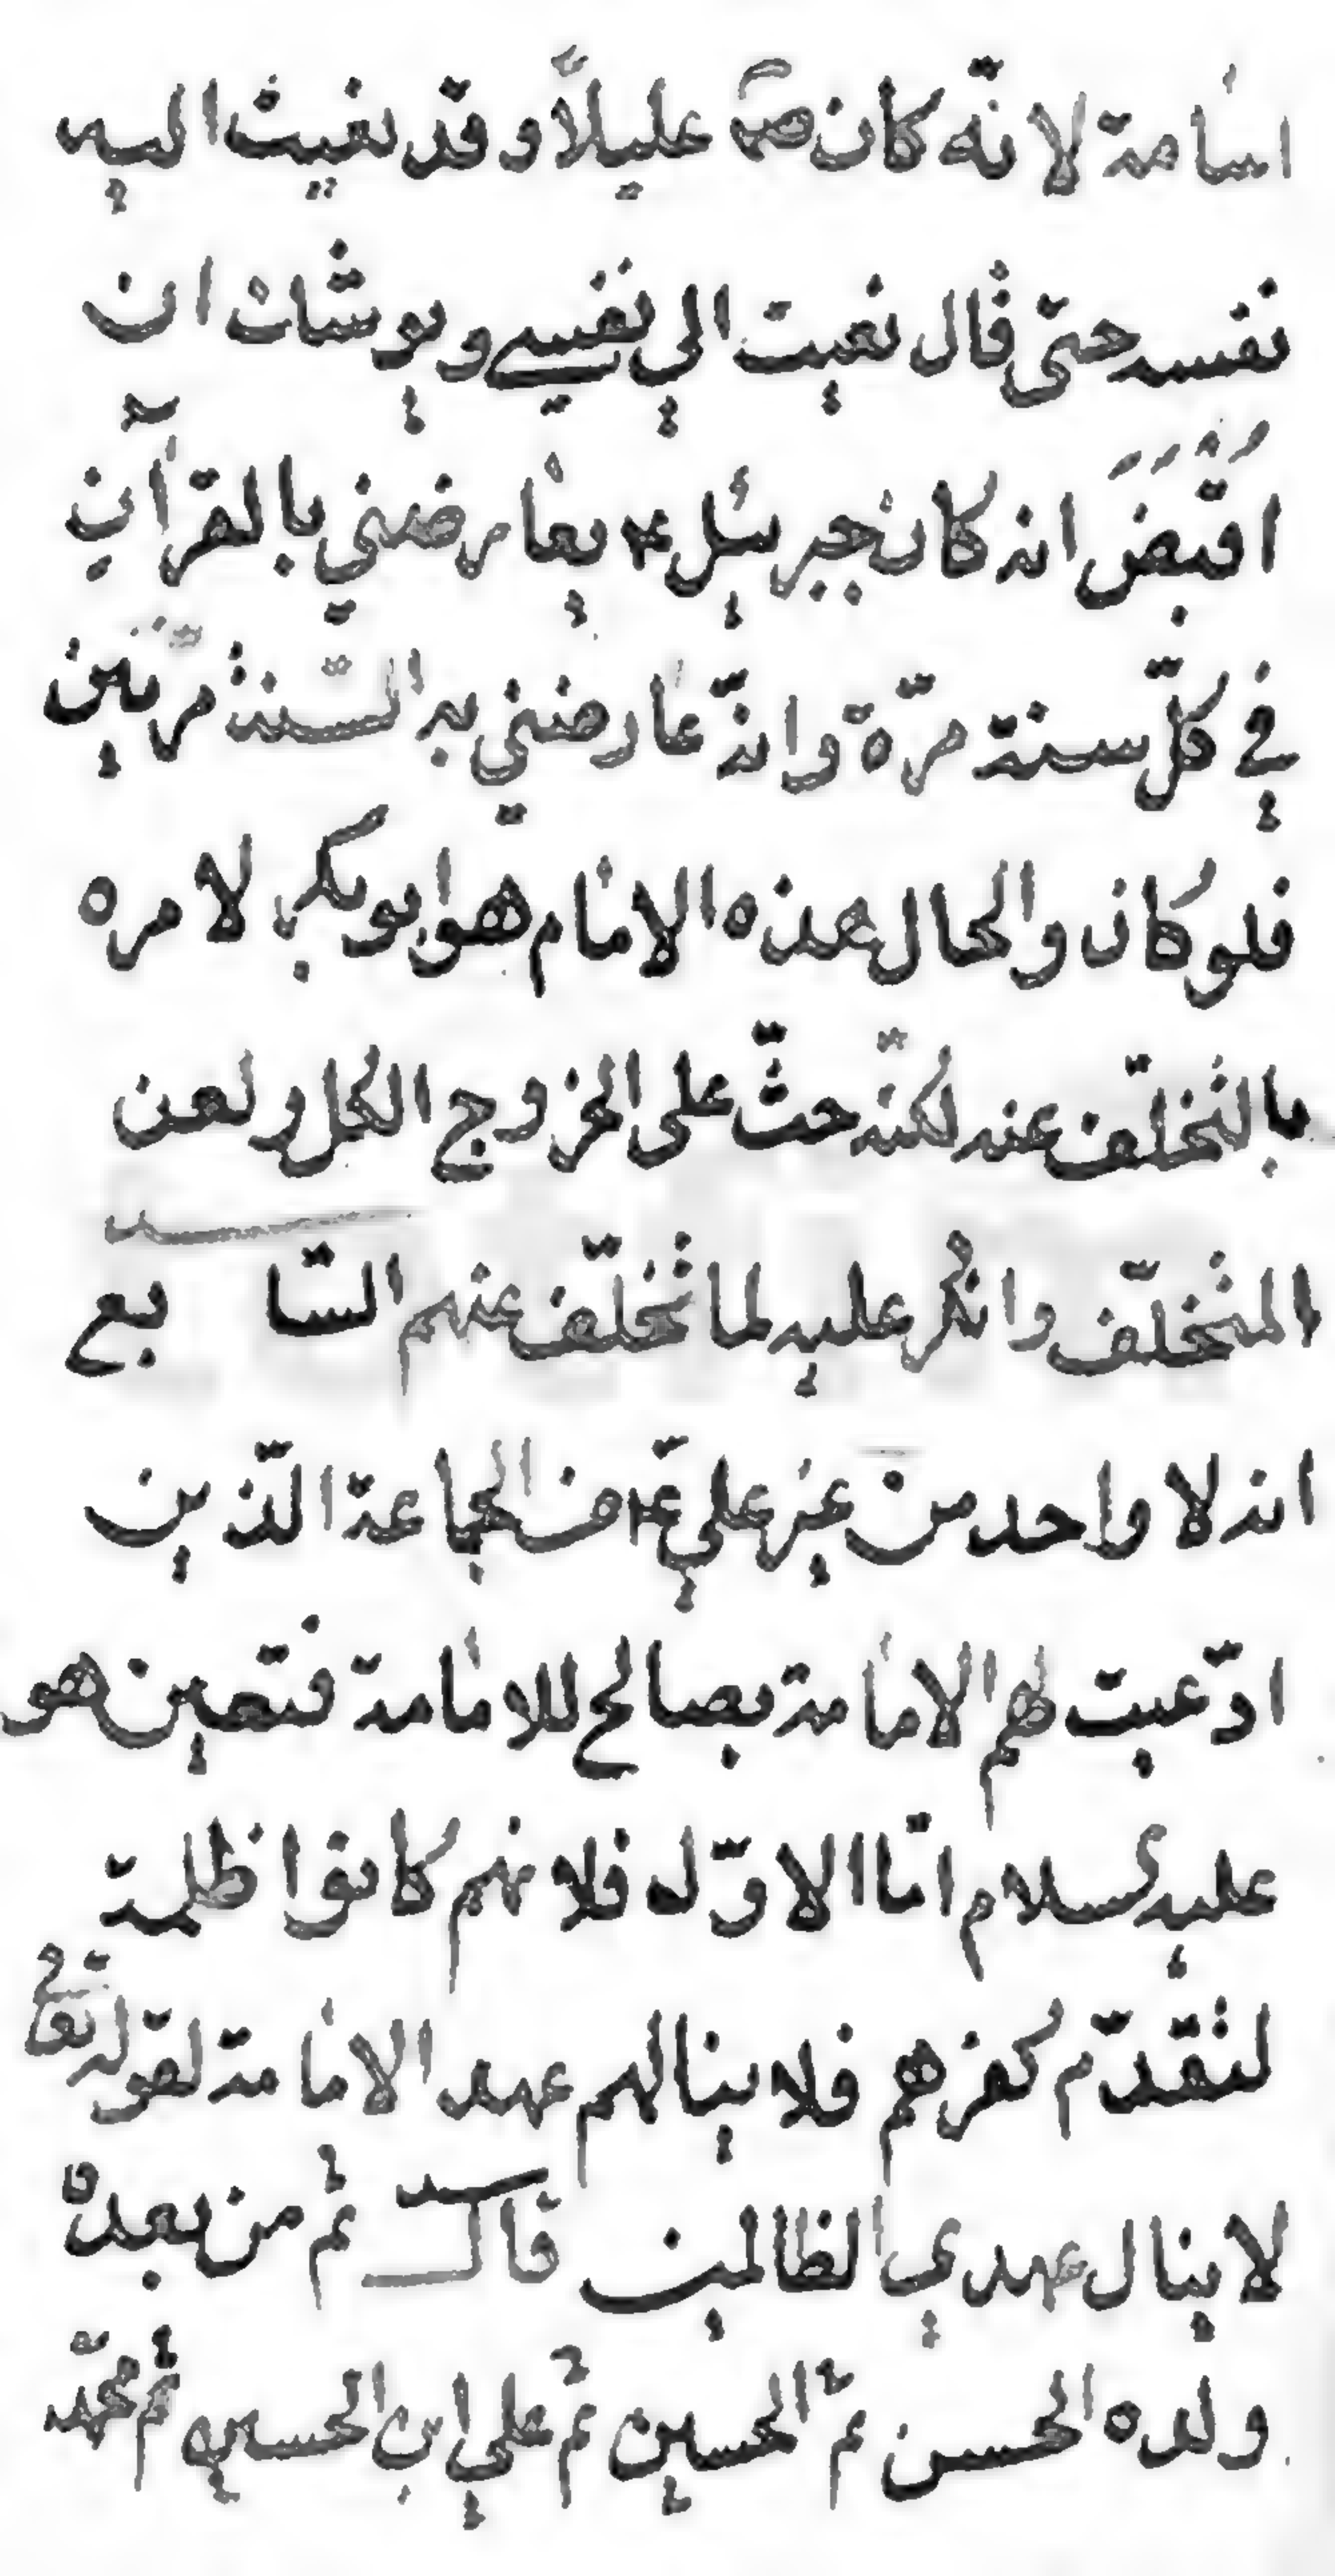 اسامة لانّه كان ص عليلاً وقد نعيت اليه
نفسه حتّى قال نعيت الي نفسي ويوشك ان
اقبض انه كان جبرئيل ع يعارضني بالقرآن
في كلّ سنة مرّة وانّه عارضني به السّنة مرّتين
فلو كان والحال هذه الامام هو ابو بكر لامره
بالتخلّف عنه لكنّه حثّ على الخروج الكل ولعن
المتخلّف وانكر عليه لما تخلّف عنهم السّابع
انه لا واحد من غير علي ع من الجماعة الّذين
ادّعيت لهم الامامة بصالح للامامة فتعين هو
عليه لسلام امّا الاوّل فلانهم كانوا ظلمة
لتقدّم كفرهم فلا ينالهم عهد الامامة لقوله تعالى
لا ينال عهدي الظالمين قال ثم من بعده
ولده الحسن ثم الحسين ثم علي ابن الحسين ثم محمّد